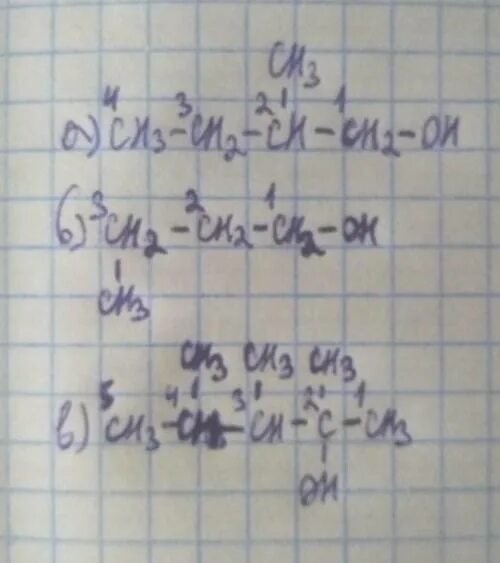 CH3
а) 4CH3-3CH2-2CH-1CH2-OH
б) 3CH2-2CH2-1CH2-OH
CH3
CH3 CH3 CH3
в) 5CH3-4CH-3CH-2C-1CH3
OH